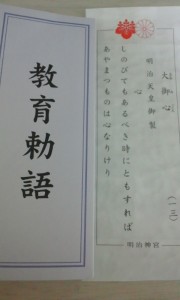 大御心
明治天皇御製
心
しのびてもあるべき時にともすれば
あやまつものは心なりけり
(一三)
明治神宮
教育勅語